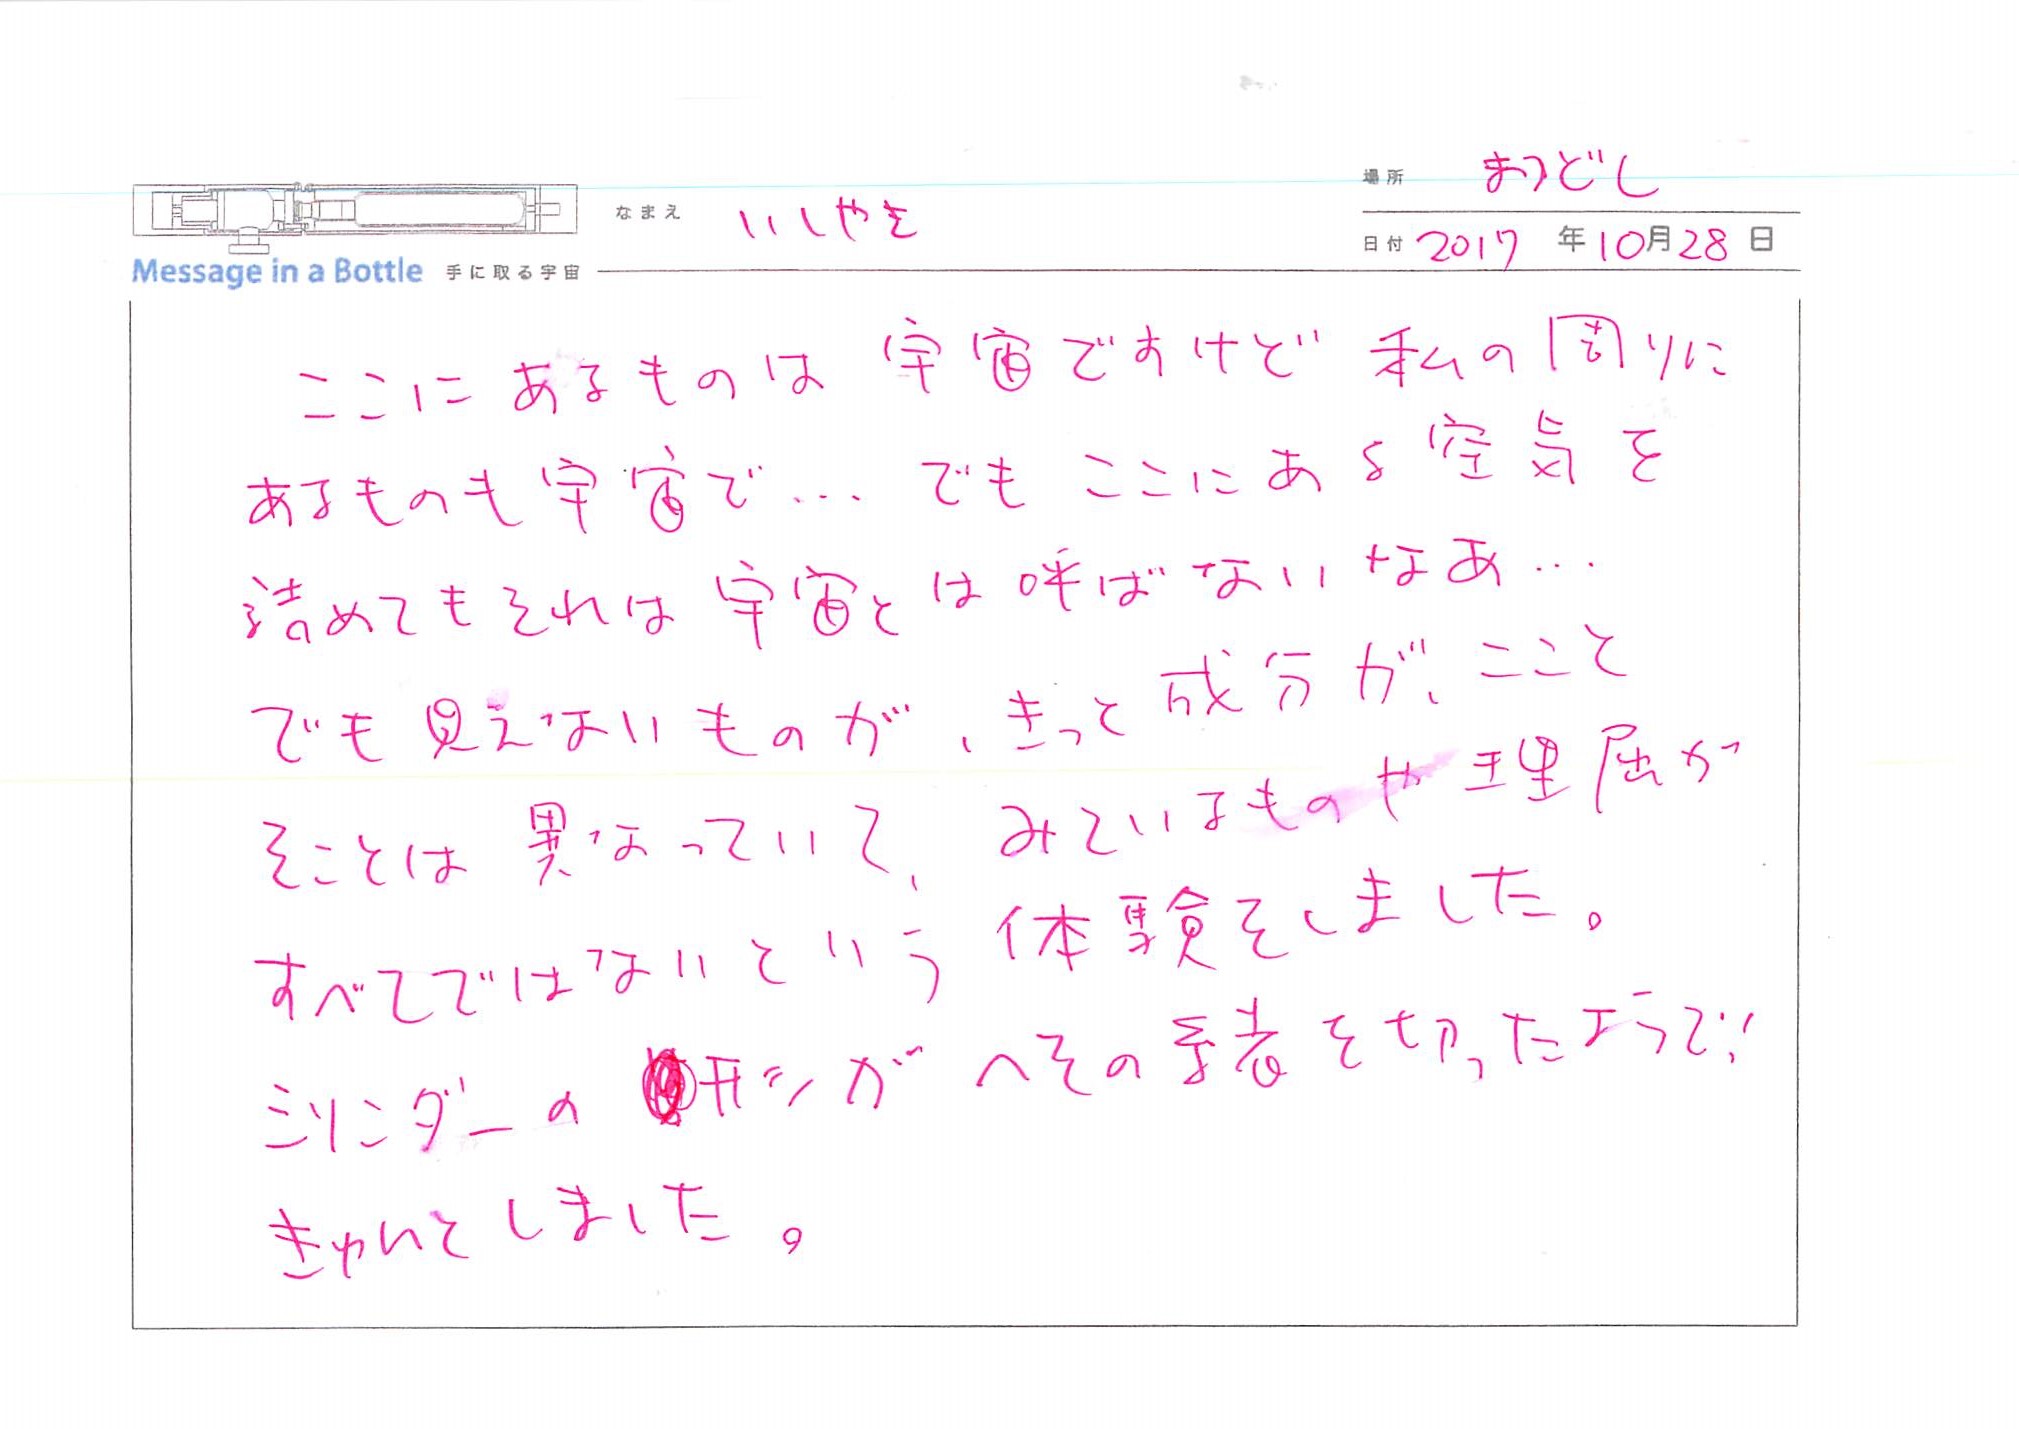 場所 まつどし
なまえ いしやき
日付 2017 年 10月 28 日
Message in a Bottle 手に取る宇宙
ここに あるものは 宇宙ですけど 私の周りに
あるものも宇宙で… でも ここにある空気を
詰めてもそれは宇宙とは呼ばないなあ…
でも見えないものが、きっと成分が、ここと
そことは異なっていて、みているものや理屈が
すべてではないという体験をしました。
シリンダーの 形が へその緒を切ったようで!
きゅんとしました。